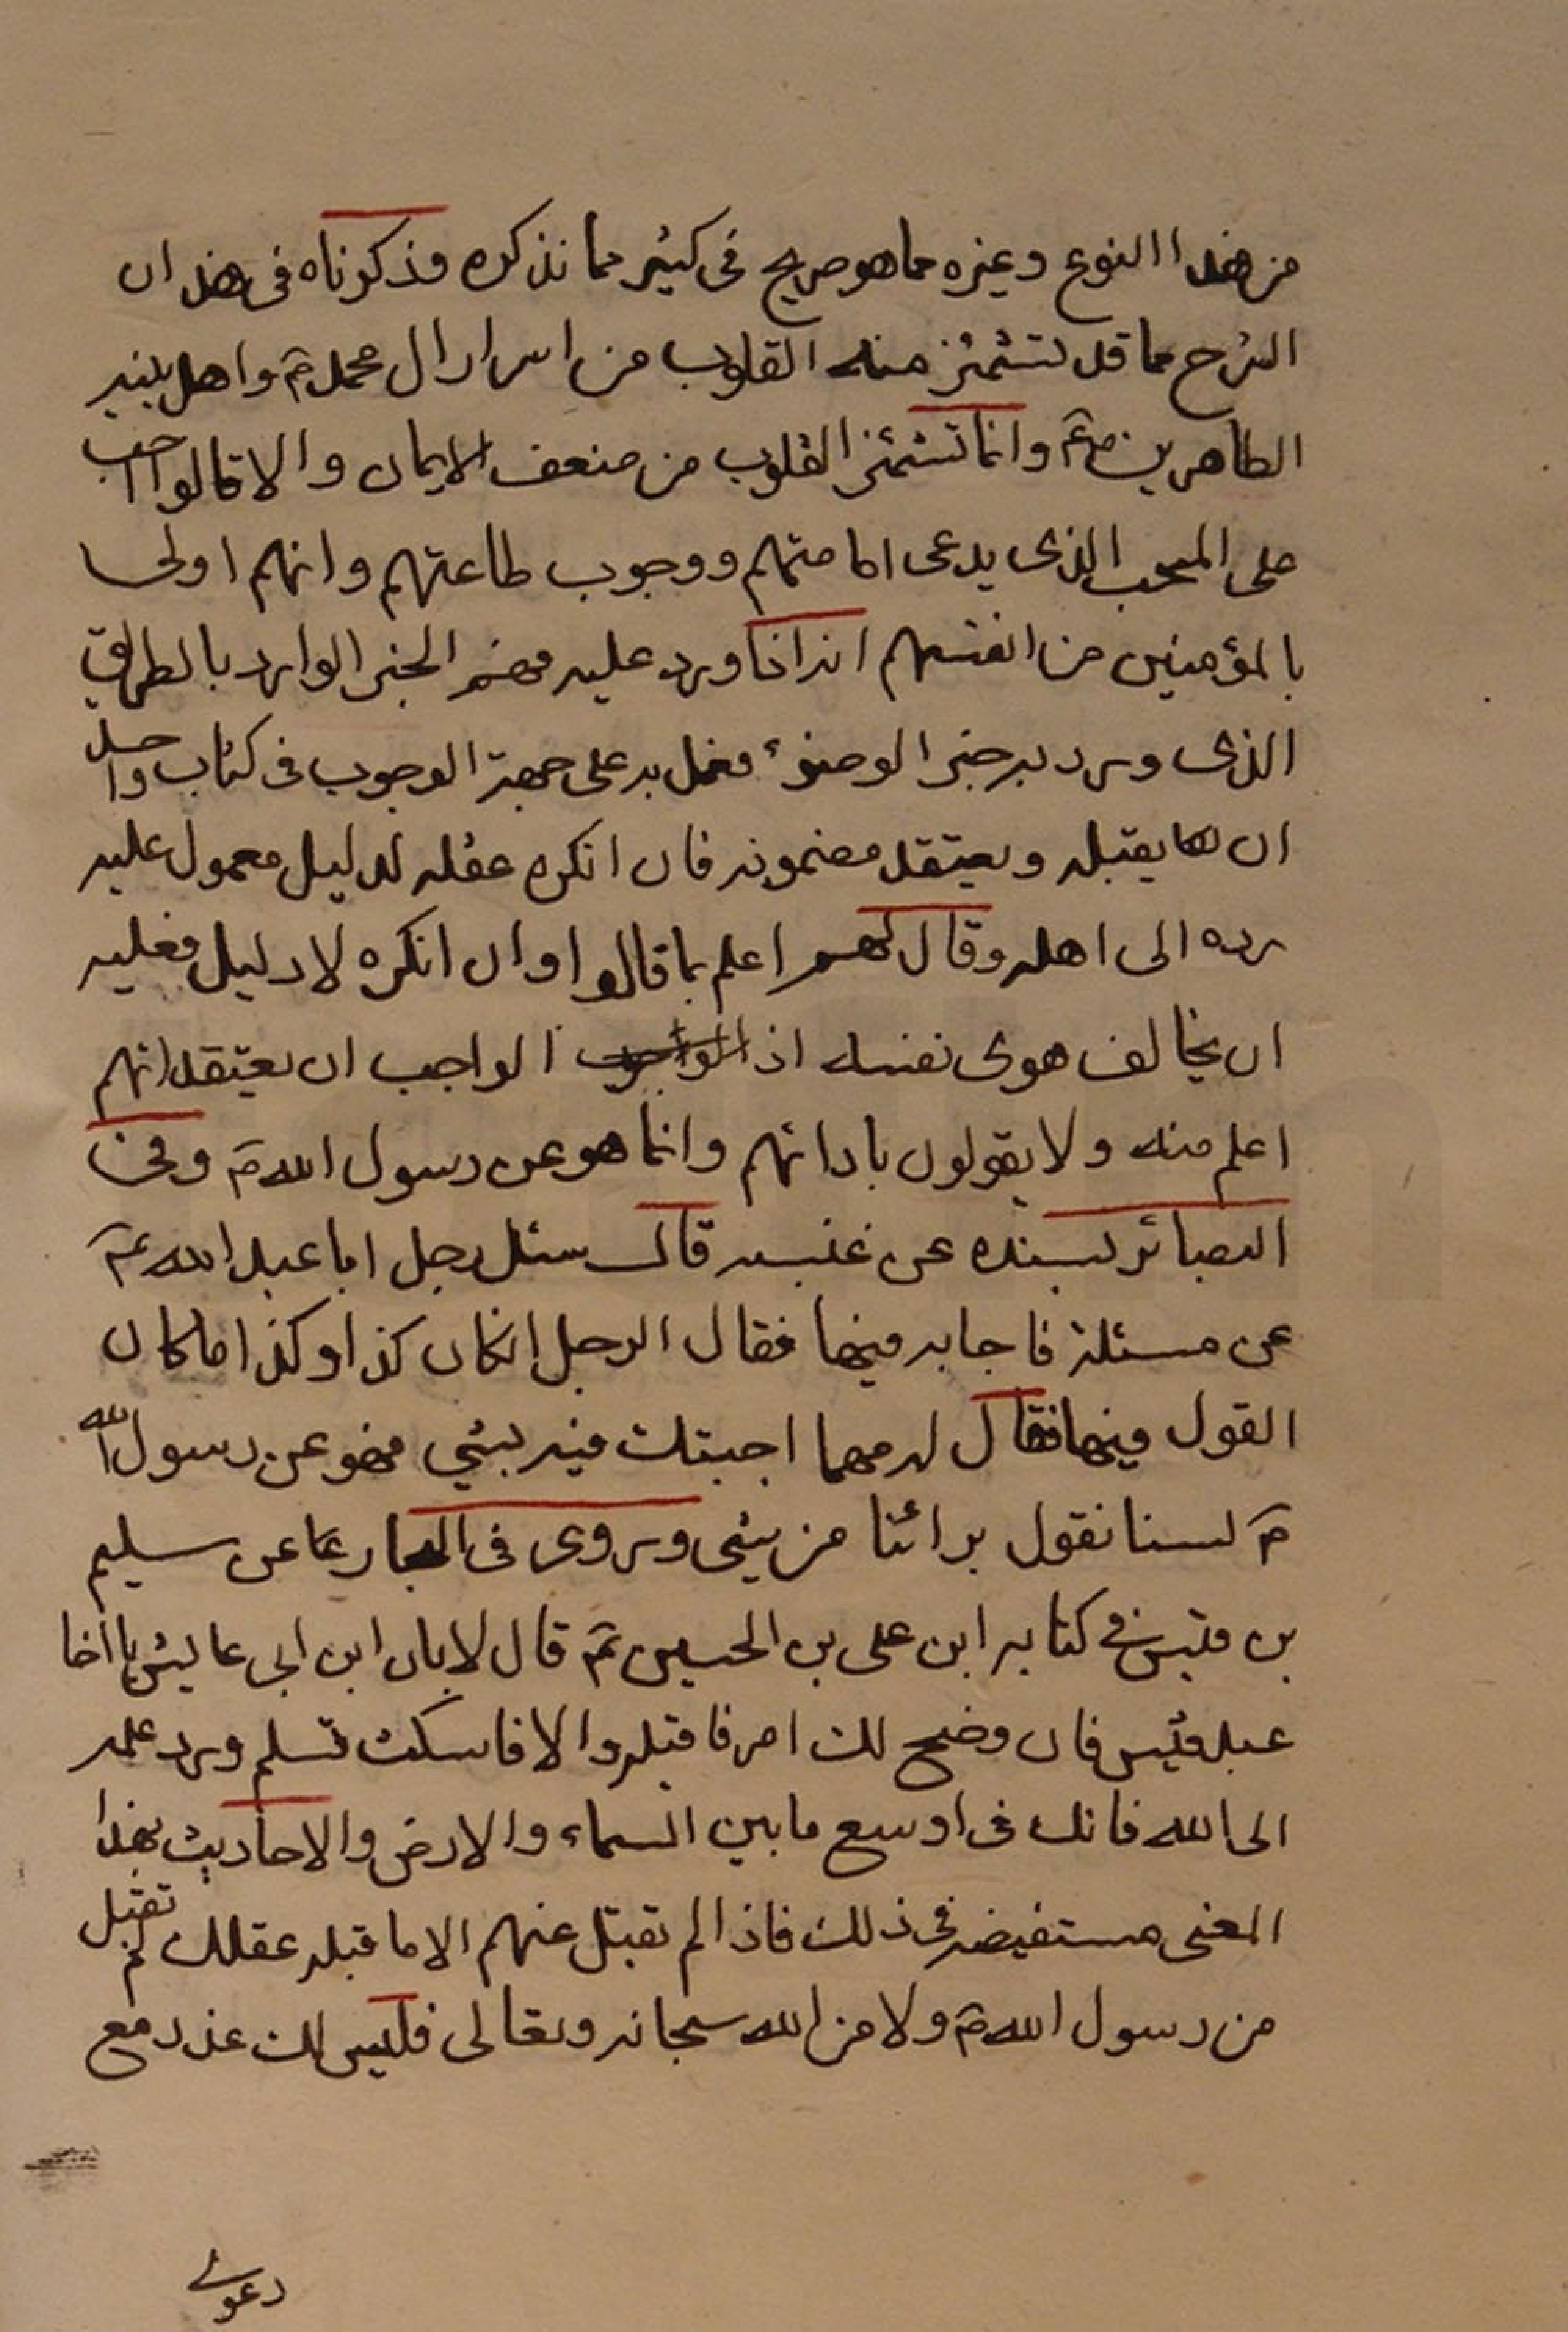 من هذا النوع وغيره مما هو صريح فى كثير مما نذكره وذكرناه فى هذا ان
الشرح مما قد تشمئز منه القلوب من اسرار ال محمد ص واهل بيته
الطاهرين ص ع وانما تشمئز القلوب من ضعف الايمان والا قالواجب
على المحب الذى يدعى امامتهم ووجوب طاعتهم وانهم اولى
بالمؤمنين من انفسهم انه اذا ورد عليه منهم الخبر الوارد بالطريق
الذى ورد به خبر الوضوء فعمل به على جهة الوجوب فى كتاب واحد
ان يقبله ويعتقد مضمونه فان انكره عقله لدليل معمول عليه
رده الى اهله وقال هم اعلم بما قالوا وان انكره لا دليل فعليه
ان يخالف هوى نفسه اذ الواجب ان يعتقد انهم
اعلم منه ولا يقولون بارائهم وانما هو عن رسول الله ص وفى
البصائر بسنده عن عنبسه قال سئل رجل ابا عبد الله ع
عن مسئلة فاجابه فيها فقال الرجل انكان كذا وكذا ما كان
القول فيها فقال له مهما اجبتك فيه بشئ فهو عن رسول الله
ص لسنا نقول برائنا من شئ وروى فى البحار عن سليم
بن قيس فى كتابه ابن على بن الحسين ع قال لابان ابن ابى عايش يا اخا
عبد قيس فان وضح لك امر فاقبله والا فاسكت تسلم ورد علمه
الى الله فانك فى اوسع ما بين السماء والارض والاحاديث بهذا
المعنى مستفيضه فى ذلك فاذا لم تقبل عنهم الا ما قبله عقلك لم تقبل
من رسول الله ص ولا من الله سبحانه وتعالى فليس لك عذر مع
دعوى